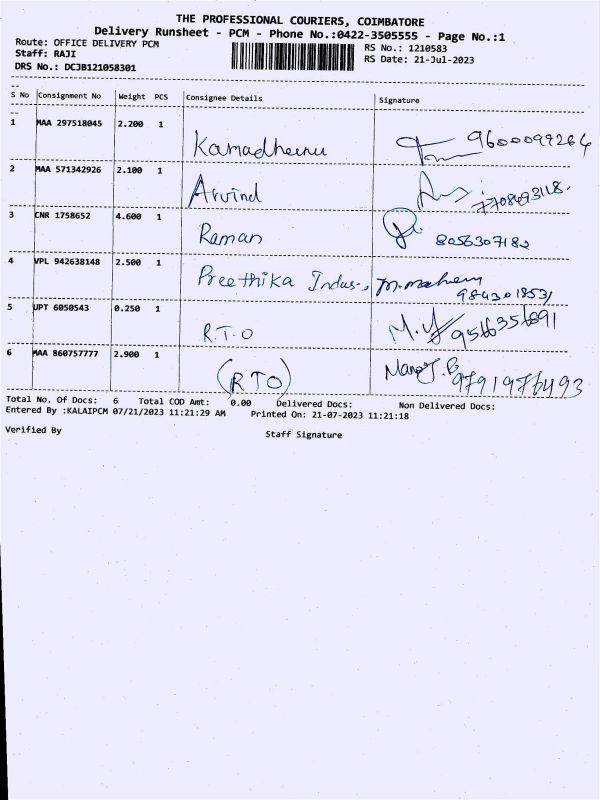 THE PROFESSIONAL COURIERS, COIMBATORE
Delivery Runsheet - PCM - Phone No.:0422-3505555 - Page No.:1
Route: OFFICE DELIVERY PCM
RS No.: 1210583
Staff: RAJI
RS Date: 21-Jul-2023
DRS No.: DCJB121058301
S No Consignment No Weight PCS Consignee Details Signature
1 MAA 297518045 2.200 1
Kamadhenu 9600099264
2 MAA 571342926 2.100 1
Arvind 7708693118.
3 CNR 1758652 4.600 1
Raman 8056307182
4 VPL 942638148 2.500 1
Preethika Indus., 984301853
5 UPT 6050543 0.250 1
R.T.O 9566356891
6 MAA 860757777 2.900 1
(RTO) 9791976493
Total No. Of Docs: 6 Total COD Amt: 0.00 Delivered Docs: Non Delivered Docs:
Entered By :KALAIPCM 07/21/2023 11:21:29 AM Printed On: 21-07-2023 11:21:18
Verified By Staff Signature